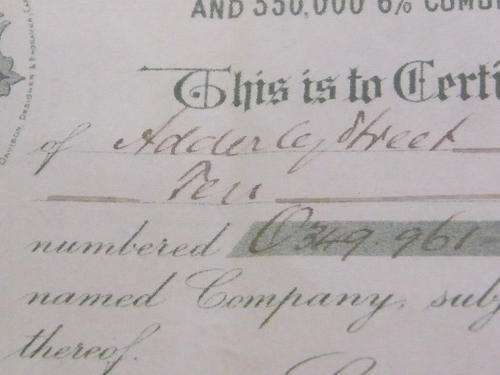 AND 330,000 6% CUMU
DAVISON, DESIGNER & ENGRAVER
This is to Certi
of Adderley Street
Ten
numbered 0349.961
named Company, subj
thereof.